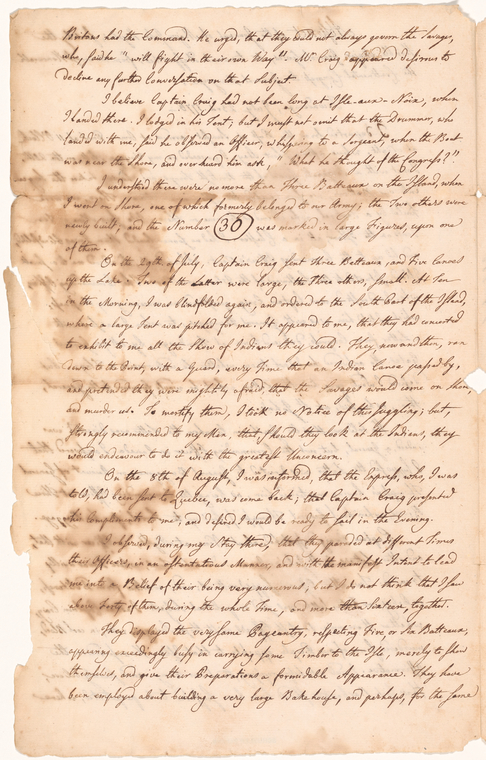 Britons had the Command. He urged, that they could not always govern the Savages,
who, said he "will fight in their own Way". Mr. Craig appeared desirous to
decline any further Conversation on that Subject.
I believe Captain Craig had not been long at Isle-aux-Noix, when
I landed there. I lodged in his Tent; but I must not omit that the Drummer, who
landed with me, said he observed an Officer, whisper to a Sergeant, when the Boat
was near the Shore, and overheard him ask "What he thought of the Congress?"
I understood there were no more than Three Batteaux on the Island, when
I went on Shore, one of which formerly belonged to our Army; the Two others were
newly built; and the Number 30 was marked in large Figures, upon one
of them.
On the 29th of July, Captain Craig sent Three Batteaux, and Five Canoes
up the Lake. Two of the Latter were large, the Three others, small. At Ten
in the Morning, I was blindfolded again, and ordered to the South Part of the Island,
where a large Tent was pitched for me. It appeared to me, that they had concerted
to exhibit to me all the Show of Indians they could. They, now and then, ran
down to the Point, with a Guard, every Time that an Indian Canoe passed by,
and pretended they were mightily afraid, that the Savages would come on Shore,
and murder us. To mortify them, I took no Notice of this Juggling; but,
strongly recommended to my Men, that, should they look at the Indians, they
would endeavour to do it with the greatest Unconcern.
On the 8th of August, I was informed, that the Express, who, I was
told, had been sent to Quebec, was come back; that Captain Craig presented
his Compliments to me, and desired I would be ready to sail in the Evening.
I observed, during my Stay there, that they paraded at different Times
their Officers, in an ostentatious Manner, and with the manifest Intent to lead
me into a Belief of their being very numerous; but I do not think that I saw
above forty of them, during the whole Time, and more than sixteen, together.
They displayed the very same Pageantry, respecting Five, or Six Batteaux,
appearing exceedingly busy in carrying some Timber to the Isle, merely to shew
themselves, and give their Preparations a formidable Appearance. They have
been employed about building a very large Bakehouse, and perhaps, for the same